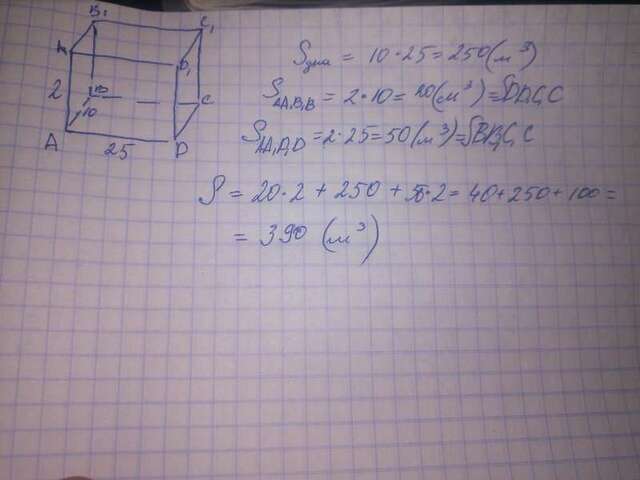 B₁ C₁
A₁ D₁
2 10 B C
A 25 D
Sдна = 10·25 = 250 (м³)
S AA₁B₁B = 2·10 = 20 (м³) = S DD₁C₁C
S AA₁D₁D = 2·25 = 50 (м³) = S BB₁C₁C
S = 20·2 + 250 + 50·2 = 40 + 250 + 100 =
= 390 (м³)